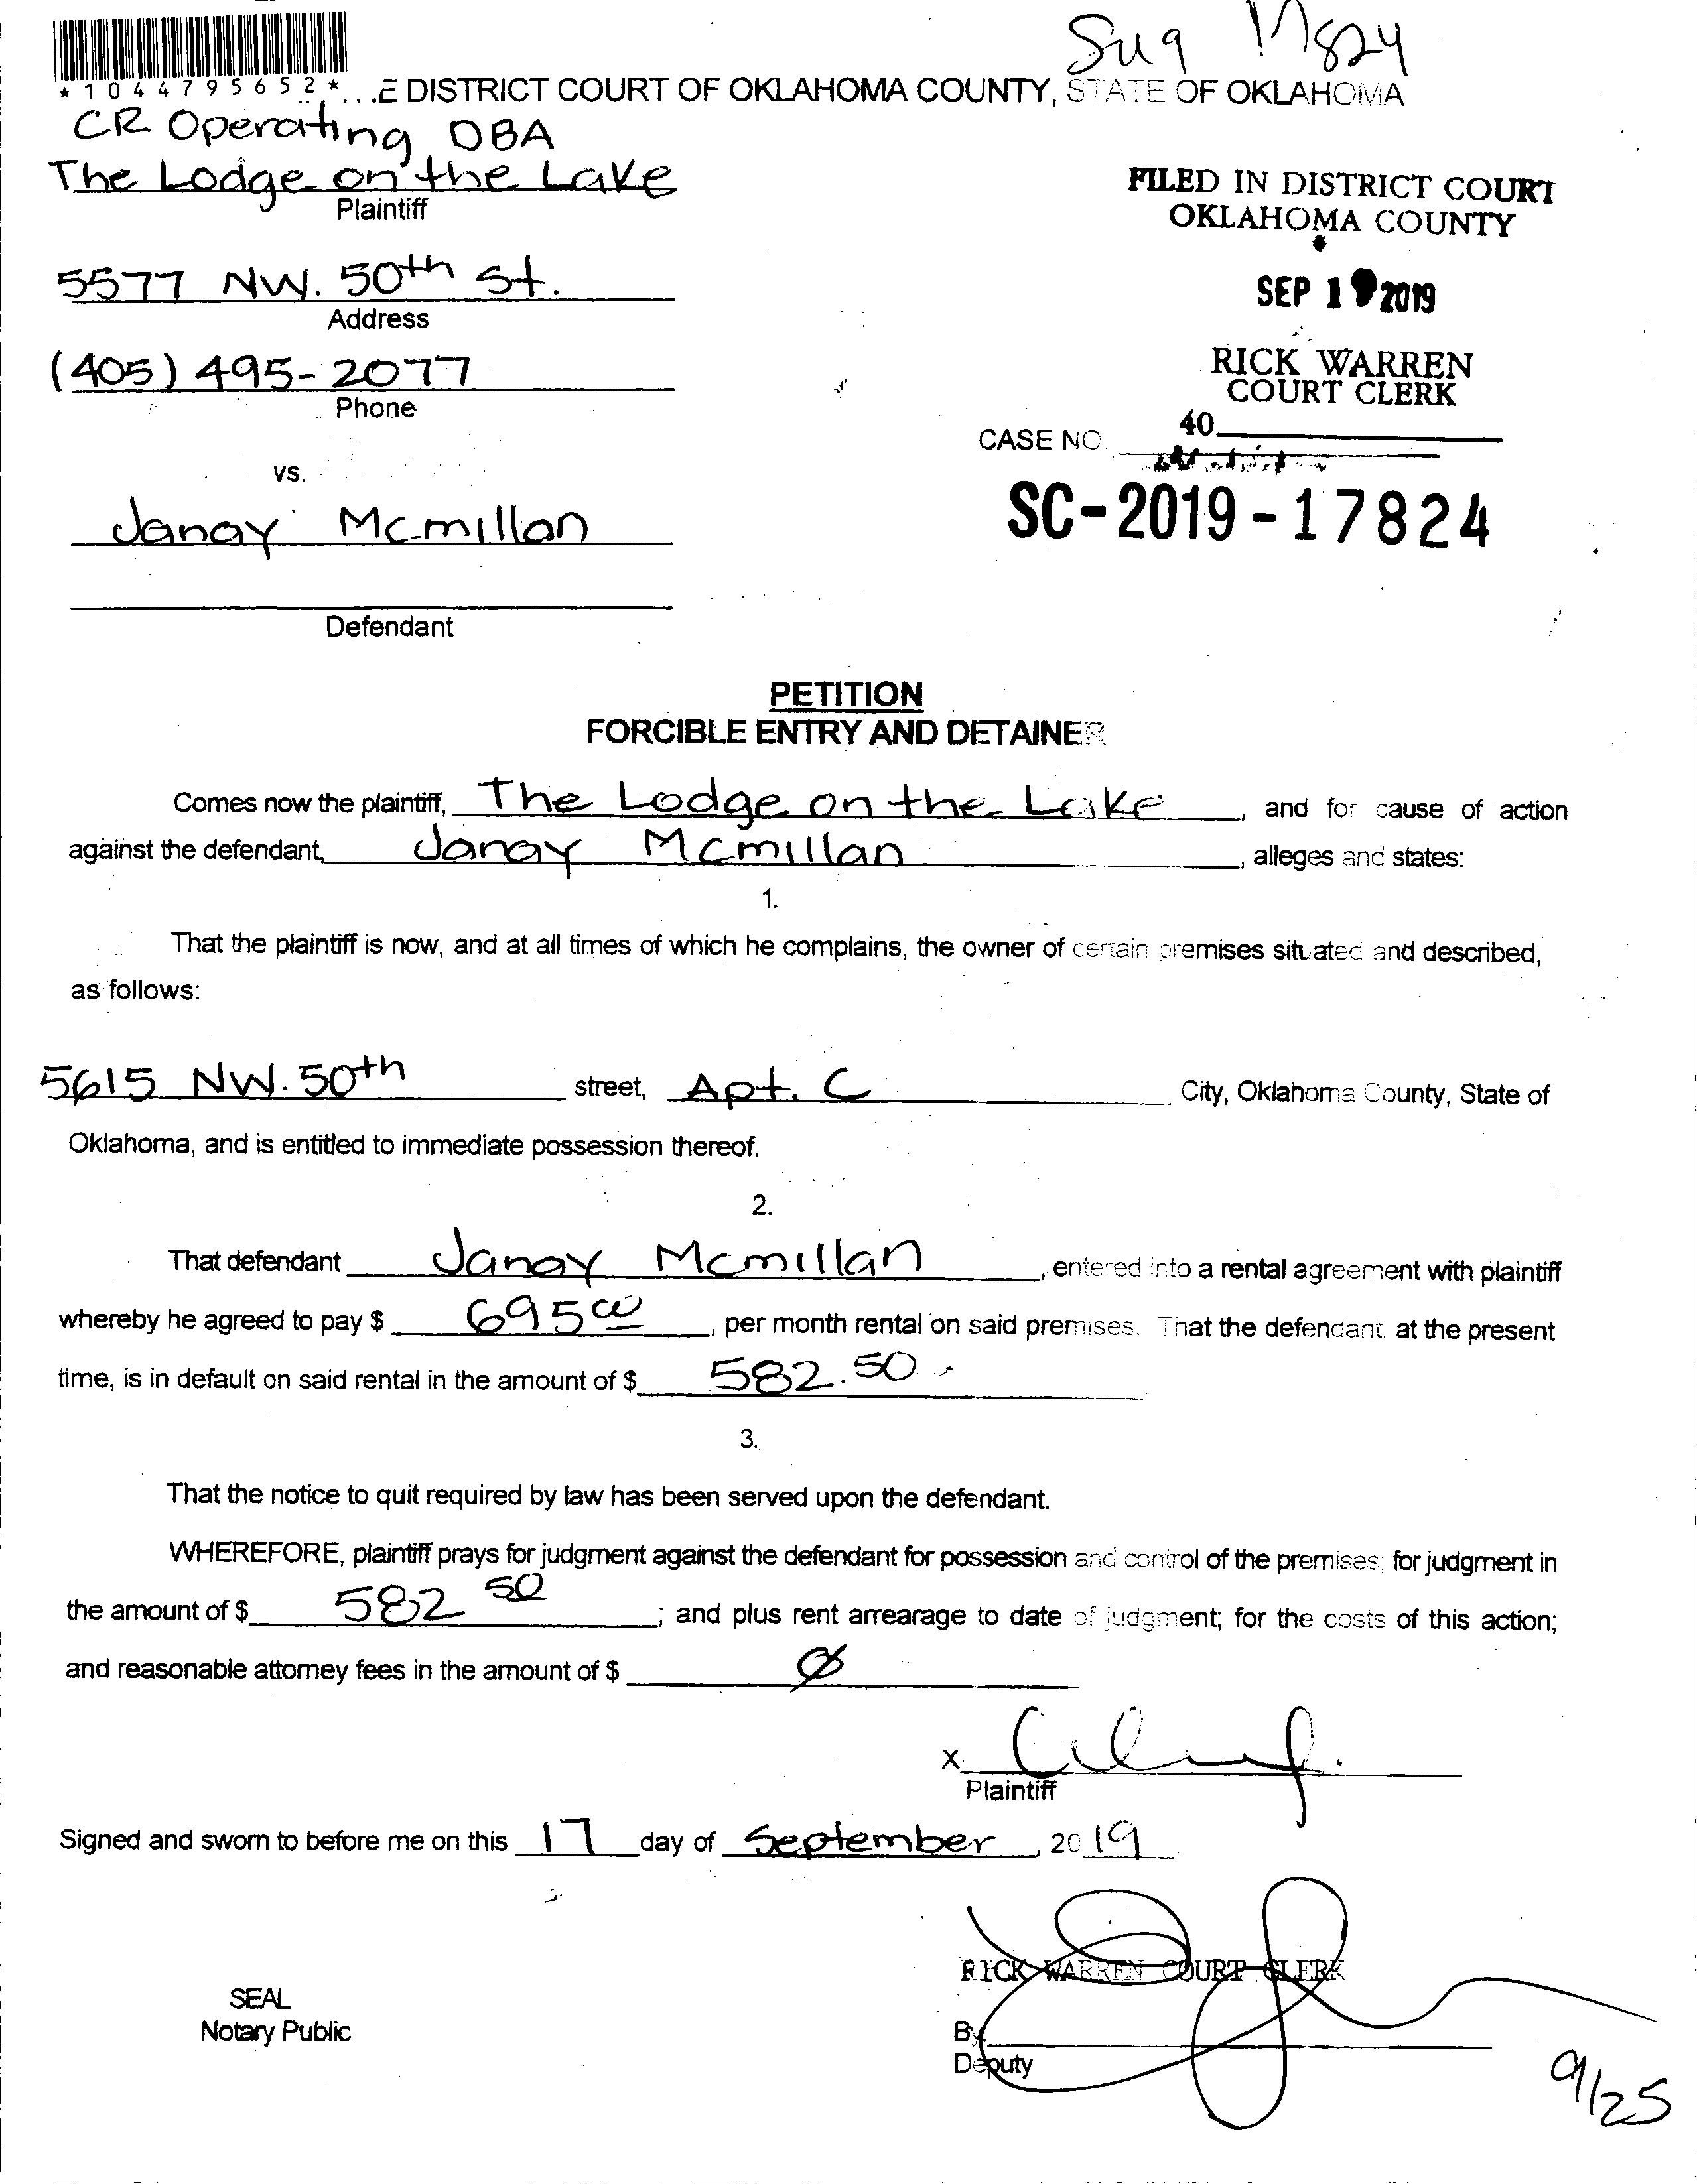 17824
*1044795652*
...E DISTRICT COURT OF OKLAHOMA COUNTY, STATE OF OKLAHOMA
CR Operating DBA
The Lodge on the Lake
Plaintiff
FILED IN DISTRICT COURT
OKLAHOMA COUNTY
5577 NW. 50th St.
Address
SEP 1 2019
(405) 495-2077
Phone
RICK WARREN
COURT CLERK
40
CASE NO.
vs.
SC-2019-17824
Janay Mcmillan
Defendant
PETITION
FORCIBLE ENTRY AND DETAINER
Comes now the plaintiff, The Lodge on the Lake, and for cause of action
against the defendant, Janay Mcmillan, alleges and states:
1.
That the plaintiff is now, and at all times of which he complains, the owner of certain premises situated and described,
as follows:
5615 NW. 50th street, Apt. C City, Oklahoma County, State of
Oklahoma, and is entitled to immediate possession thereof.
2.
That defendant Janay Mcmillan, entered into a rental agreement with plaintiff
whereby he agreed to pay $ 695 00, per month rental on said premises. That the defendant, at the present
time, is in default on said rental in the amount of $ 582.50
3.
That the notice to quit required by law has been served upon the defendant.
WHEREFORE, plaintiff prays for judgment against the defendant for possession and control of the premises; for judgment in
the amount of $ 582 50; and plus rent arrearage to date of judgment; for the costs of this action;
and reasonable attorney fees in the amount of $ Ø
X
Plaintiff
Signed and sworn to before me on this 17 day of September, 2019
RICK WARREN COURT CLERK
SEAL
Notary Public
By
Deputy
9/25